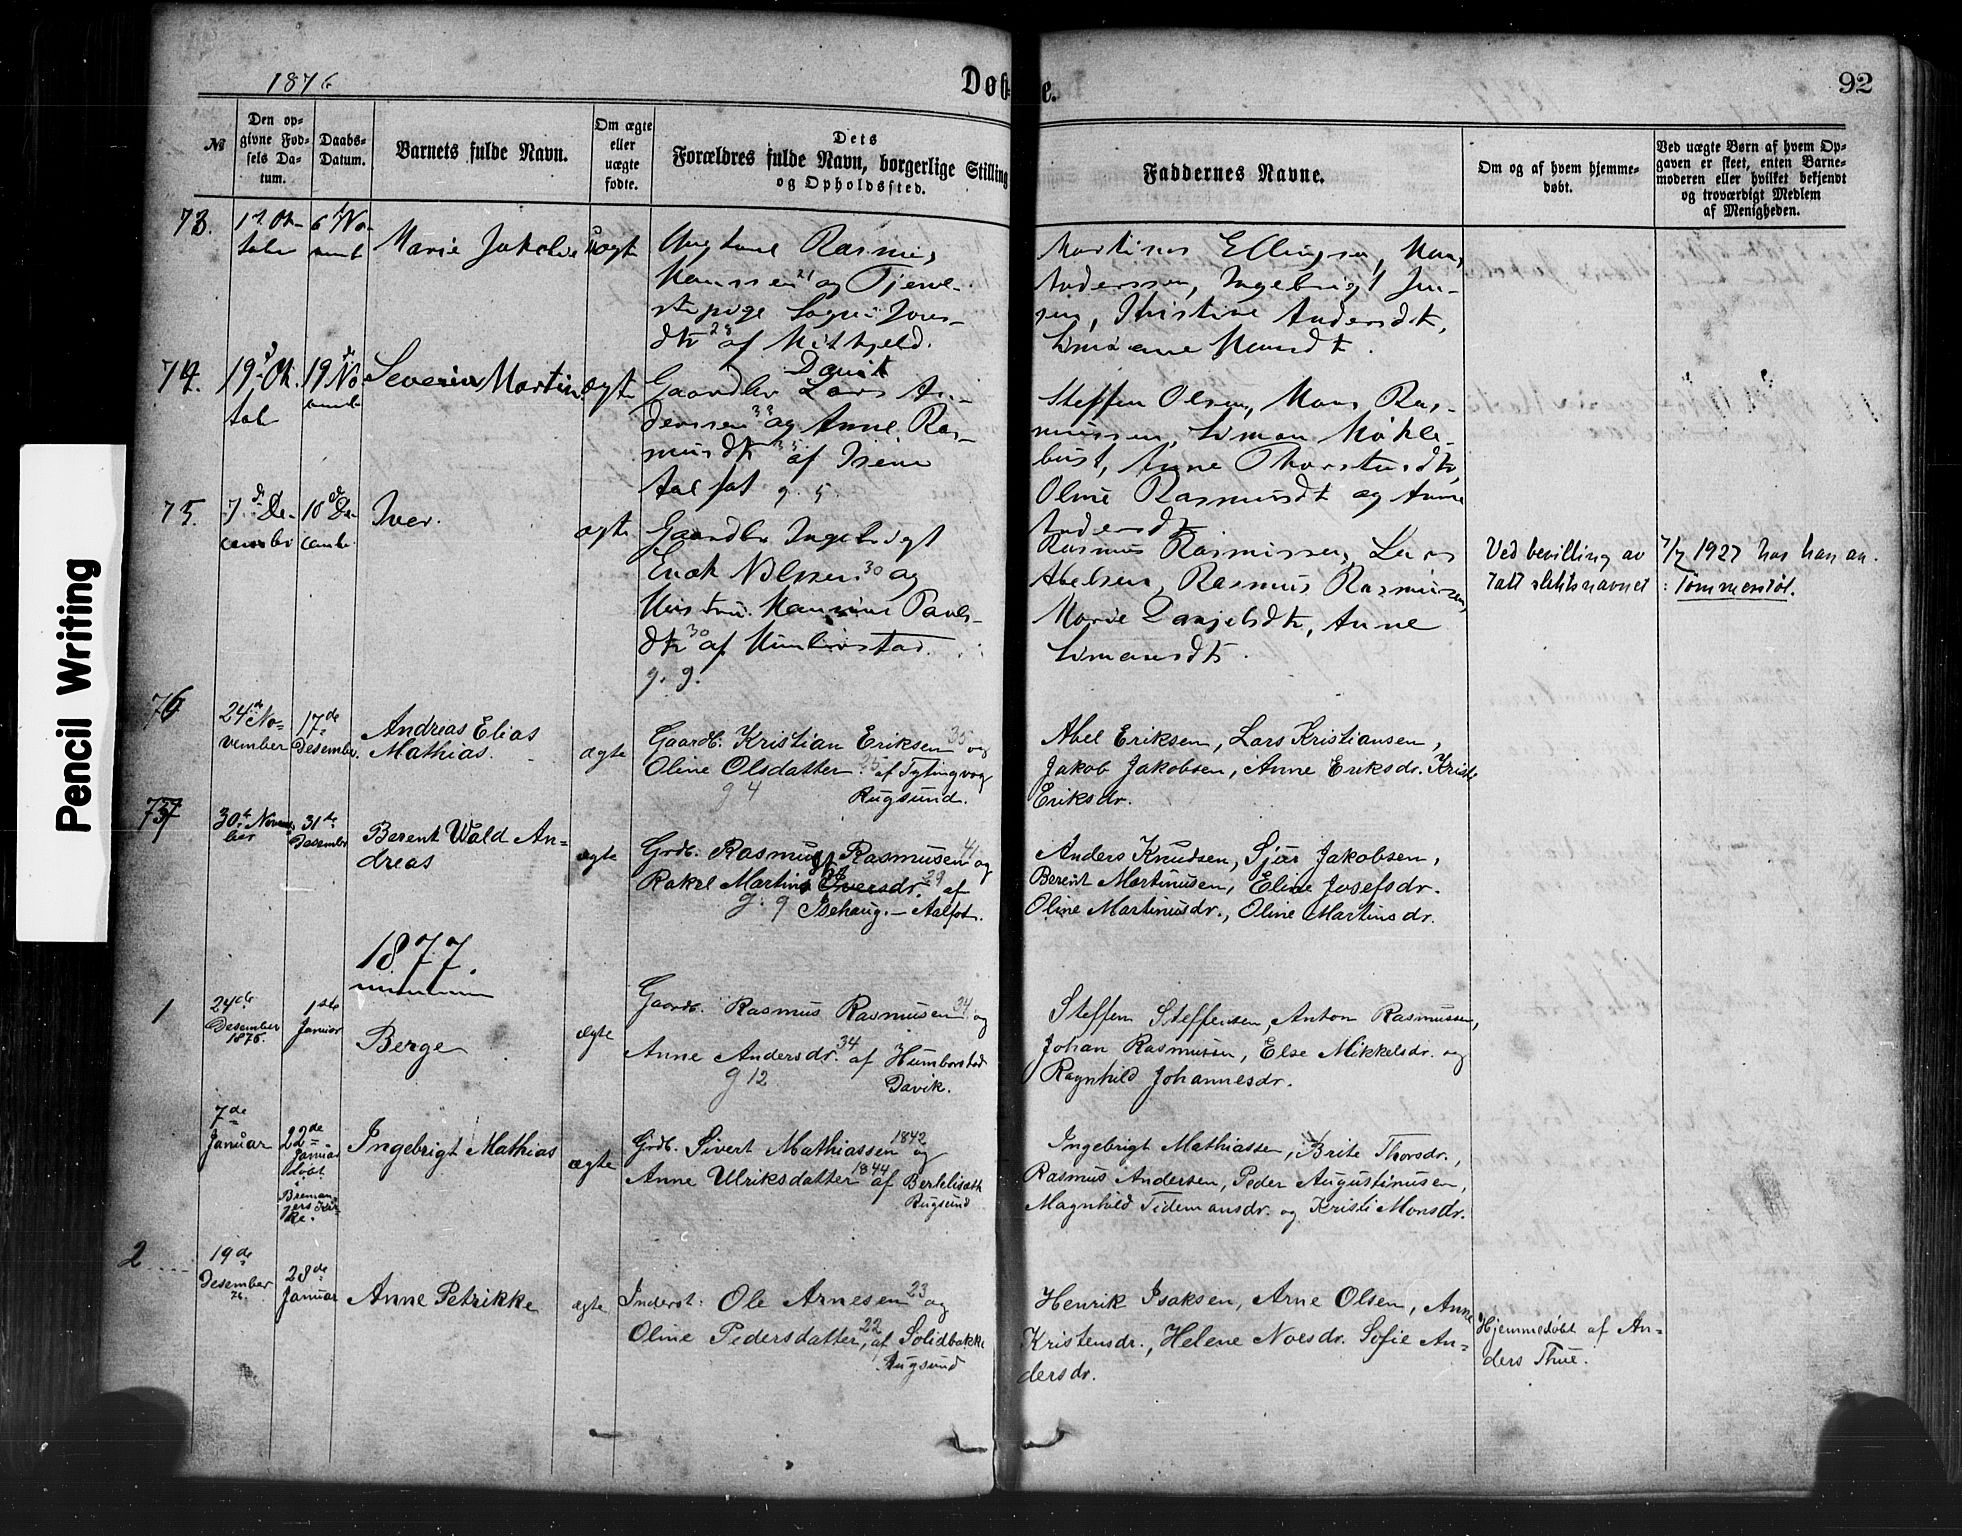 1876
Døbte.
92
№
Den op-
givne Fød-
sels Da-
tum.
Daabs-
Datum.
Barnets fulde Navn.
Om ægte
eller
uægte
fødte.
Dets
Forældres fulde Navn, borgerlige Stilling
og Opholdssted.
Faddernes Navne.
Om og af hvem hjemme-
døbt.
Ved uægte Børn af hvem Op-
gaven er skeet, enten Barne-
moderen eller hvilket bekjendt
og troværdigt Medlem
af Menigheden.
73.
Marie
uægte
Ungkarl Rasmus
Monssen 21 og Tjene-
stepige
dtr 28 af
Martinus Ellingsen, Mons
Anderssen, Ingebrigt Jen-
sen, Kristine Andersdtr,
74.
19de Ok-
tob
19de No-
vemb
Severin Martin
ægte
Gaardbr Lars An-
derssen 33 og Anne Ras-
musdtr af Isene
Aalfot g. 5.
Steffen Olsen, Mons Ras-
mussen, Simon Mykle-
bust, Anne Thorstensdtr,
Oline Rasmusdtr og Anne
Andersdtr
75.
7de De-
cember
10de De-
cember
Iver.
ægte
Gaardbr Ingebrigt
Enok Nilssen 30 og
Hustru
dtr 30 af Humborstad
g. 9.
Rasmus Rasmussen, Lars
Abelsen, Rasmus Rasmussen,
Marie Danjelsdtr, Anne
Simonsdtr.
Ved bevilling av 7/7 1927 har han an-
tatt slektsnavnet : Tømmerstøl.
76
24de No-
vember
17de
Desember.
Andreas Elias
Mathias.
ægte
Gaardb. Kristian Eriksen 35 og
Oline Olsdatter 25 af Tytingvog
g 4 Rugsund.
Abel Eriksen, Lars Kristiansen,
Jakob Jakobsen, Anne Eriksdr. Kristi
Eriksdr.
77
30te Novem-
ber
31te
Desember
Berent Wald An-
dreas
ægte
Grdb. Rasmus Rasmusen 41 og
Rakel Martine Iversdr. 29 af
g. 9 Isehaug. – Aalfot.
Anders Knudsen, Sjur Jakobsen,
Berent Martinusen, Eline Josefsdr.
Oline Martinusdr., Oline Martinsdr.
1877.
1
24de
Desember
1876.
1ste
Januar
Berge
ægte
Gaardb. Rasmus Rasmusen 34 og
Anne Andersdr. 34 af Humborstad
g 12 Davik.
Steffen Steffensen, Anton Rasmussen,
Johan Rasmussen, Else Mikkelsdr. og
Ragnhild Johannesdr.
7de
Januar
22de
Januar
døbt
i
Breman-
gers Kir-
ke.
Ingebrigt Mathias
ægte
Grdb. Sivert Mathiassen 1842 og
Anne Ulriksdatter 1844 af Berkelisæth
Rugsund
Ingebrigt Mathiassen, Brite Thorsdr.,
Rasmus Andersen, Peder Augustinusen,
Magnhild Tidemansdr. og Kristi Monsdr.
2
19de
Desember
76.
28de
Januar
Anne Petrikke
ægte
Inderst: Ole Arnesen 23 og
Oline Pedersdatter, 22 af Solidbakke
Rugsund
Henrik Isaksen, Arne Olsen, Anne
Kristensdr., Helene Noesdr. Sofie An-
dersdr.
Hjemmedøbt af An-
ders Thue.
Pencil Writing